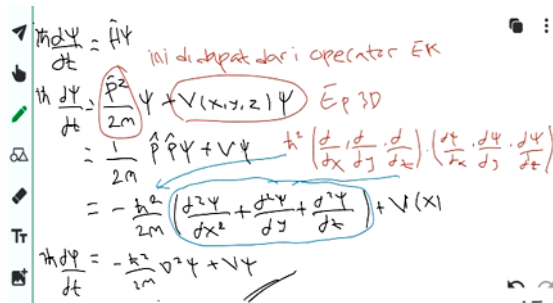 iħ dψ/dt = Ĥψ
ini didapat dari operator EK
iħ dψ/dt = p̂²/2m ψ + V(x,y,z)ψ Ep 3D
= 1/2m p̂ p̂ ψ + Vψ
ħ² (d/dx, d/dy, d/dz) · (dψ/dx · dψ/dy · dψ/dz)
= -ħ²/2m (d²ψ/dx² + d²ψ/dy + d²ψ/dz) + V(x)
iħ dψ/dt = -ħ²/2m ∇²ψ + Vψ
Tт